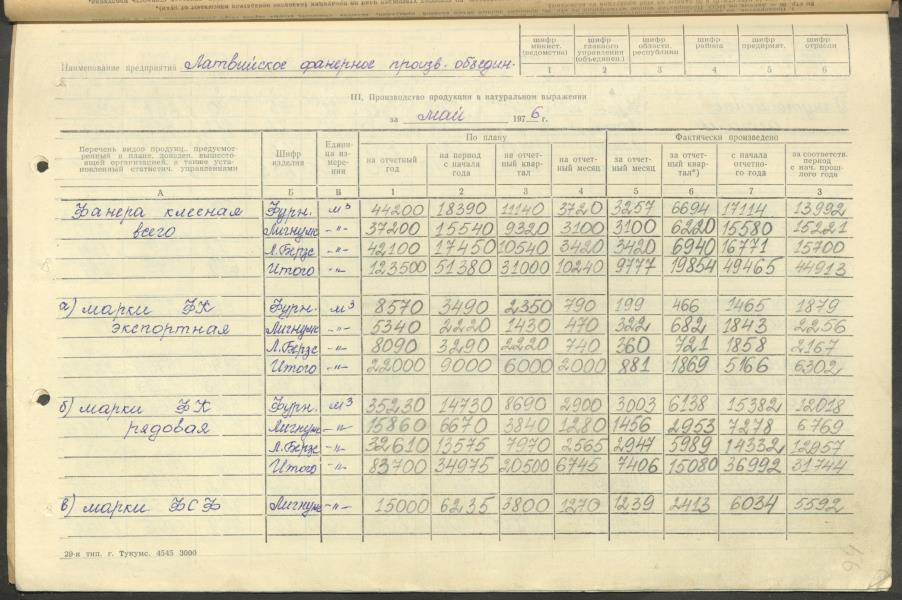 шифр минист. (ведомства) шифр главного управления (объединен.) шифр области, республики шифр района шифр предприят. шифр отрасли
1 2 3 4 5 6
Наименование предприятия Латвийское фанерное произв. объедин.
III. Производство продукции в натуральном выражении
за май 1976 г.
Перечень видов продукц., предусмотренный в плане, доведен. вышестоящей организацией, а также установленный статистич. управлениями Шифр изделия Единица измерения По плану Фактически произведено
на отчетный год на период с начала года на отчетный квартал на отчетный месяц за отчетный месяц за отчетный квартал*) с начала отчетного года за соответств. период с нач. прошлого года
А Б В 1 2 3 4 5 6 7 8
Фанера клееная Фурн. м³ 44200 18390 11140 3720 3257 6694 17114 13992
всего Лигнумс -"- 37200 15540 9320 3100 3100 6220 15580 15221
Л.Берзс -"- 42100 17450 10540 3420 3420 6940 16771 15700
Итого -"- 123500 51380 31000 10240 9777 19854 49465 44913
а) марки ФК Фурн. м³ 8570 3490 2350 790 199 466 1465 1879
экспортная Лигнумс -"- 5340 2220 1430 470 322 682 1843 2256
Л.Берзс -"- 8090 3290 2220 740 360 721 1858 2167
Итого -"- 22000 9000 6000 2000 881 1869 5166 6302
б) марки ФК Фурн. м³ 35230 14730 8690 2900 3003 6138 15382 12018
рядовая Лигнумс -"- 15860 6670 3840 1280 1456 2953 7278 6769
Л.Берзс -"- 32610 13575 7970 2565 2947 5989 14332 12957
Итого -"- 83700 34975 20500 6745 7406 15080 36992 31744
в) марки ФСФ Лигнумс -"- 15000 6235 3800 1270 1239 2413 6034 5592
29-я тип. г. Тукумс. 4545 3000